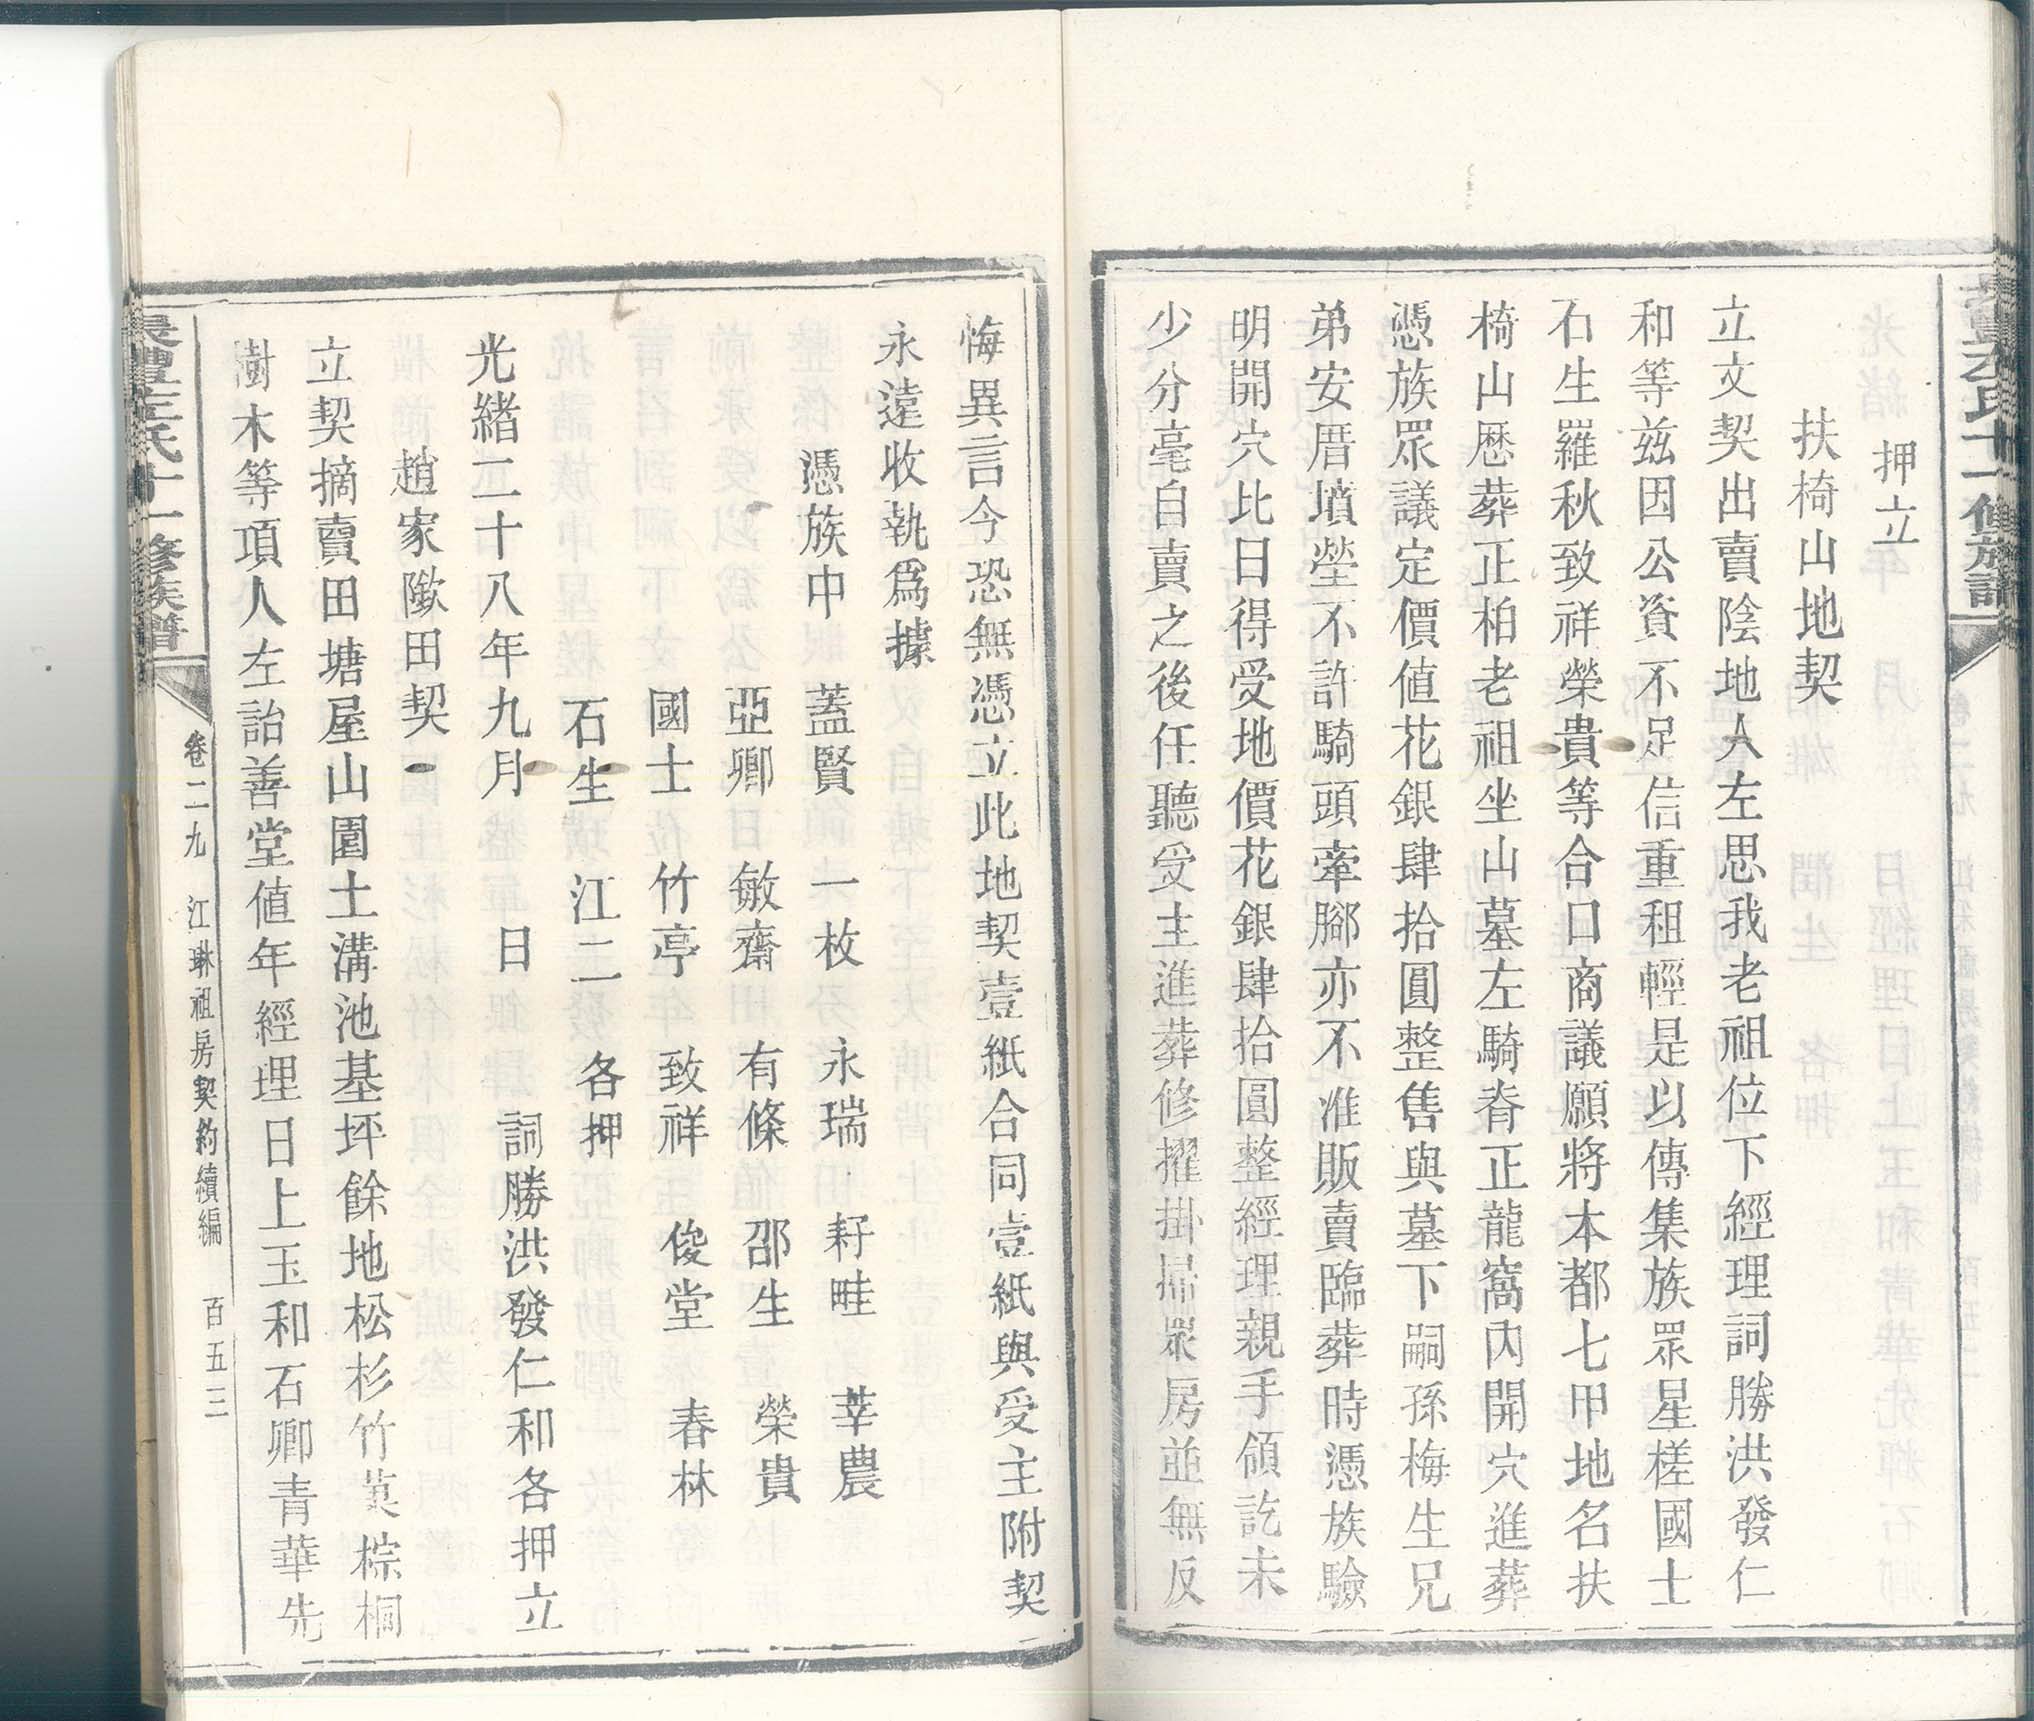 押立
扶椅山地契
立文契出賣陰地人左思我老祖位下經理詞勝洪發仁
和等兹因公資不足信重租輕是以傳集族眾星槎國士
石生羅秋致祥榮貴等合口商議願將本都七甲地名扶
椅山歷葬正柏老祖坐山墓左騎脊正龍窩內開穴進葬
憑族眾議定價值花銀肆拾圓整售與墓下嗣孫梅生兄
弟安厝墳塋不許騎頭牽腳亦不准販賣臨葬時憑族驗
明開穴比日得受地價花銀肆拾圓整經理親手領訖未
少分毫自賣之後任聽受主進葬修擢掛掃眾房並無反
悔異言今恐無憑立此地契壹紙合同壹紙與受主附契
永遠收執爲據
憑族中 蓋賢 一枚 永瑞 耔畦 莘農
亞卿 敏齋 有條 邵生 榮貴
國士 竹亭 致祥 俊堂 春林
石生 江二 各押
光緒二十八年九月 日 詞勝洪發仁和各押立
趙家隞田契
立契摘賣田塘屋山園土溝池基坪餘地松杉竹菓棕桐
樹木等項人左詒善堂值年經理日上玉和石卿青華先
左氏十一修族譜 卷二九 江琳祖房契約續編 百五三